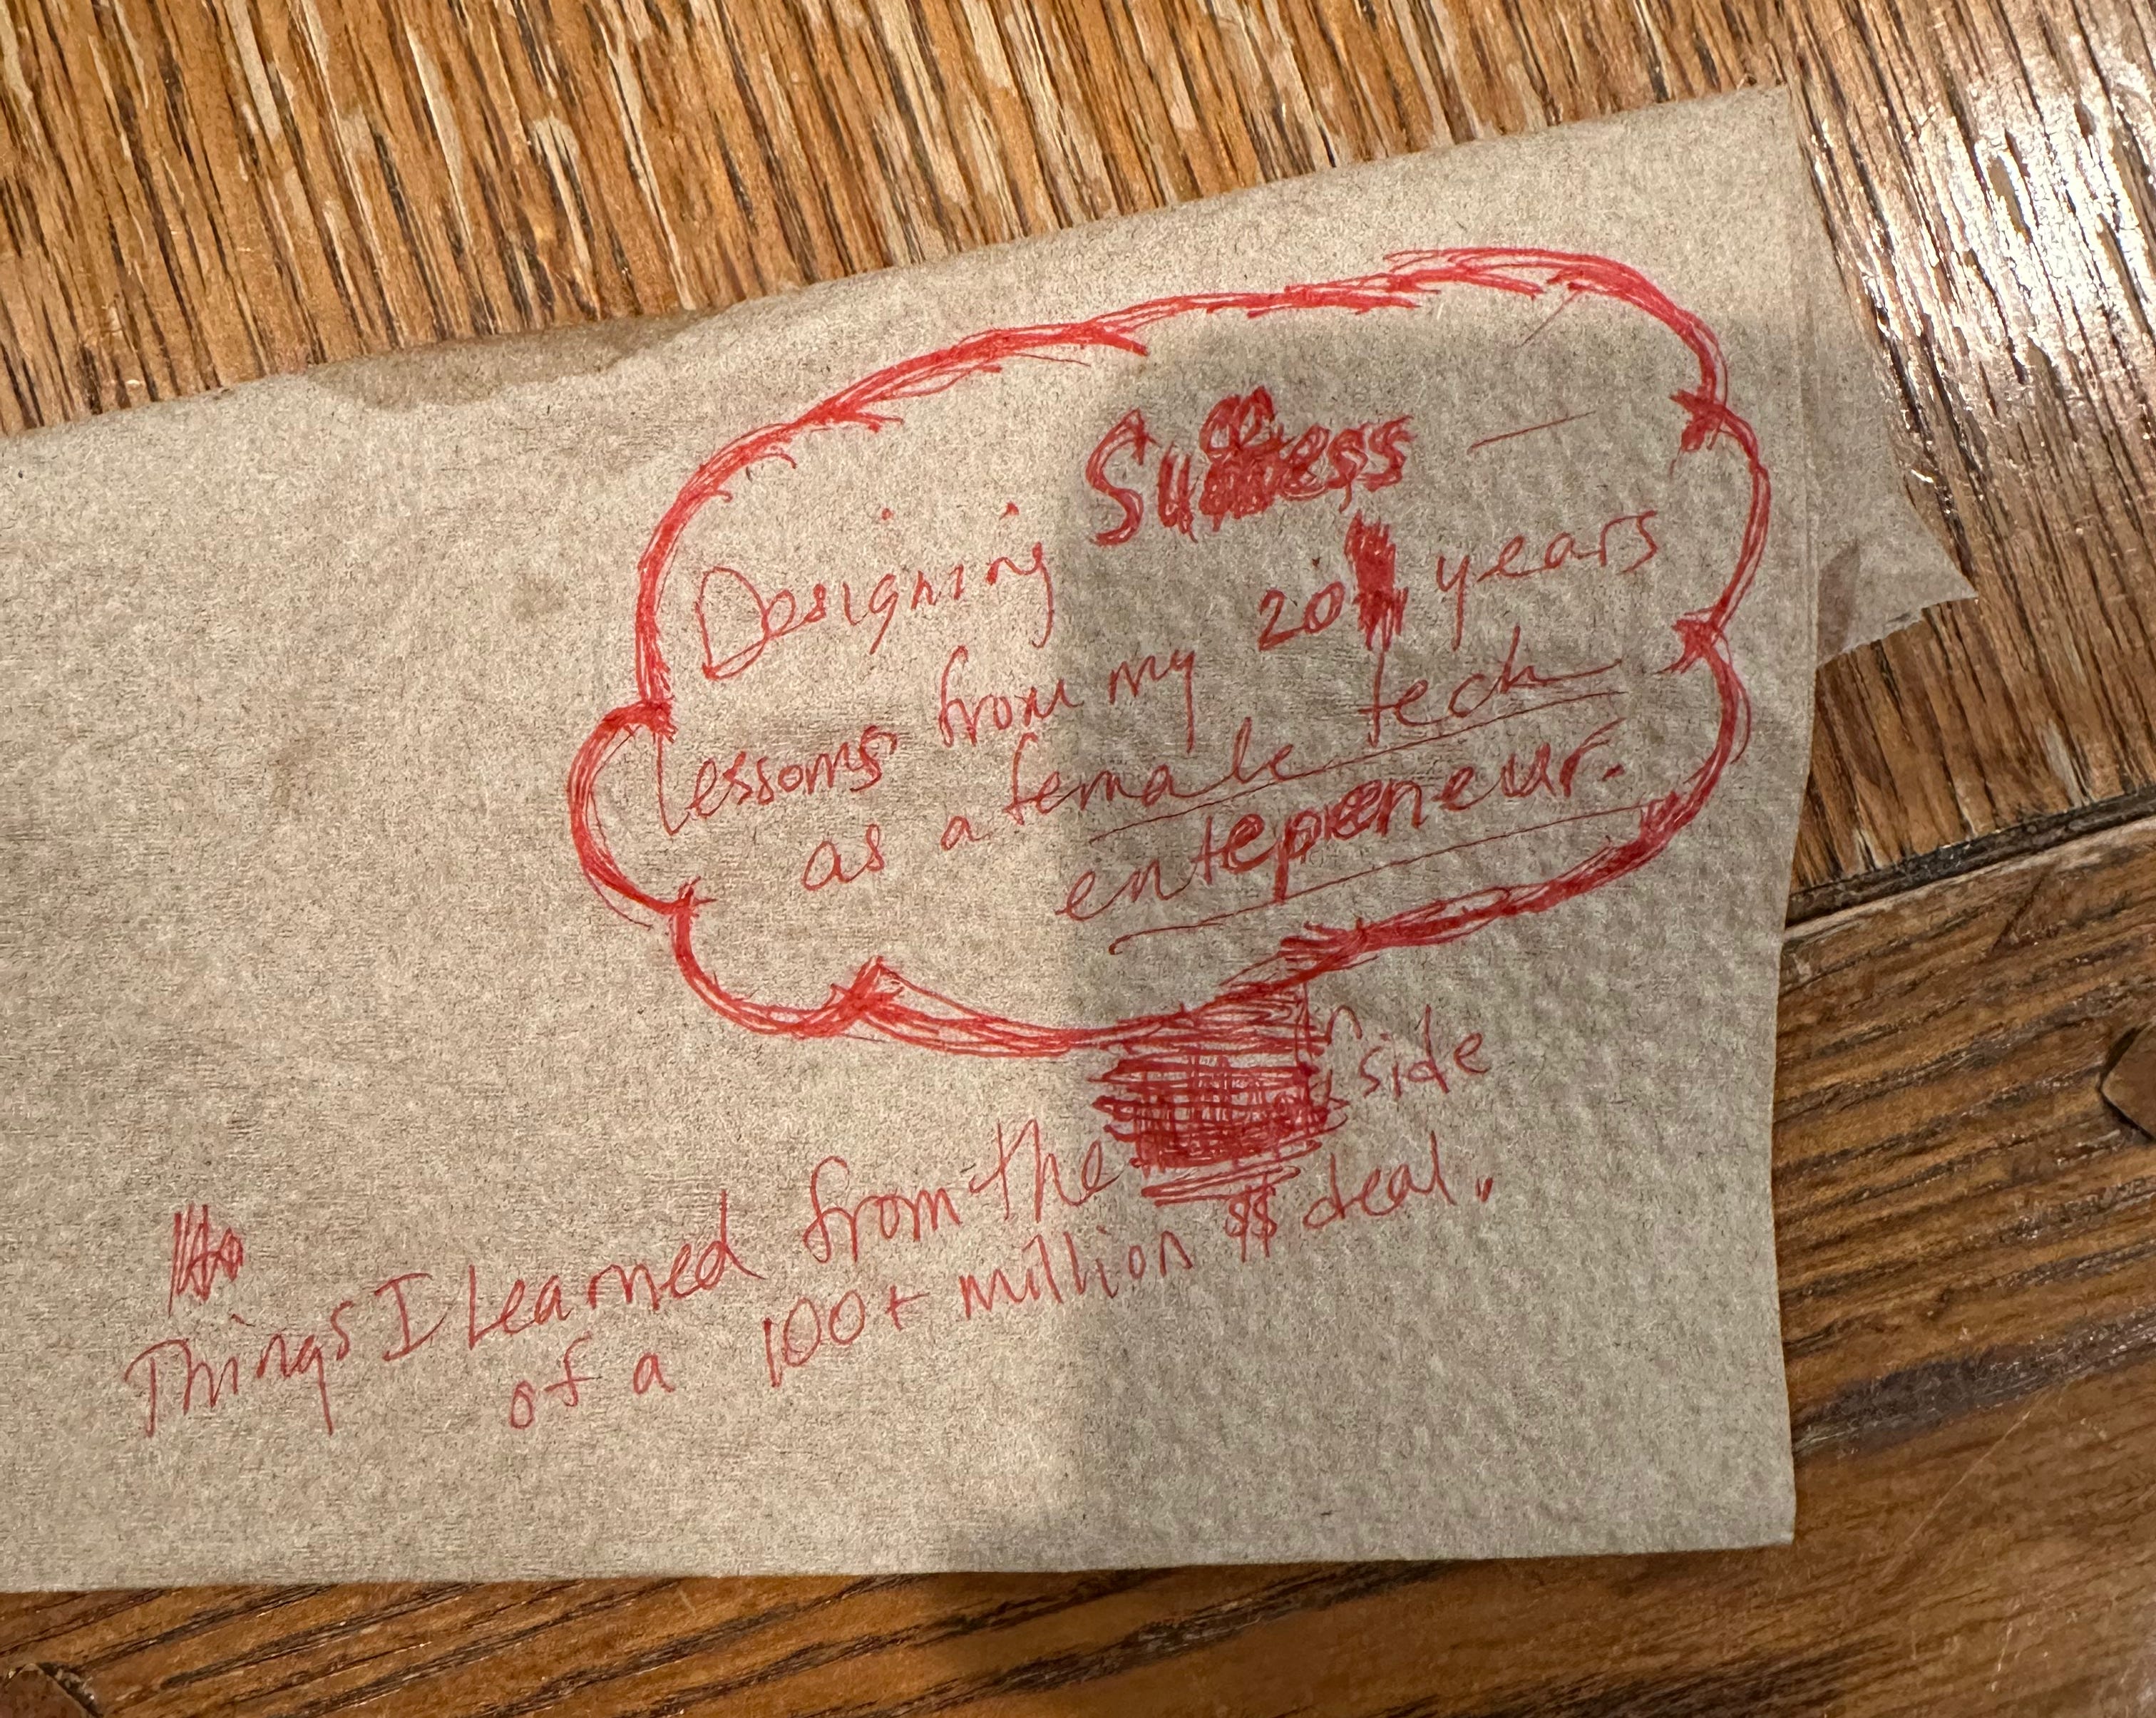 Designing Success —
lessons from my 20 years
as a female tech
entepreneur.
Things I Learned from the inside
of a 100+ million $$ deal.